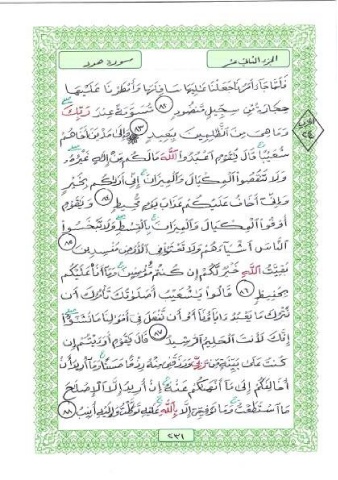 الجزء الثاني عشر
سورة هود
فلما جاء أمرنا جعلنا عاليها سافلها وأمطرنا عليها
حجارة من سجيل منضود ٨٢ مسومة عند ربك
وما هي من الظالمين ببعيد ٨٣ وإلى مدين أخاهم
شعيبا قال يقوم اعبدوا الله مالكم من إله غيره
ولا تنقصوا المكيال والميزان إني أراكم بخير
وإني أخاف عليكم عذاب يوم محيط ٨٤ ويقوم
أوفوا المكيال والميزان بالقسط ولا تبخسوا
الناس أشياءهم ولا تعثوا في الأرض مفسدين ٨٥
بقيت الله خير لكم إن كنتم مؤمنين وما أنا عليكم
بحفيظ ٨٦ قالوا يشعيب أصلوتك تأمرك أن
نترك ما يعبد ءاباؤنا أو أن نفعل في أموالنا ما نشؤا
إنك لأنت الحليم الرشيد ٨٧ قال يقوم أرءيتم إن
كنت على بينة من ربي ورزقني منه رزقا حسنا وما أريد أن
أخالفكم إلى ما أنهاكم عنه إن أريد إلا الإصلاح
ما استطعت وما توفيقي إلا بالله عليه توكلت وإليه أنيب ٨٨
٢٣١